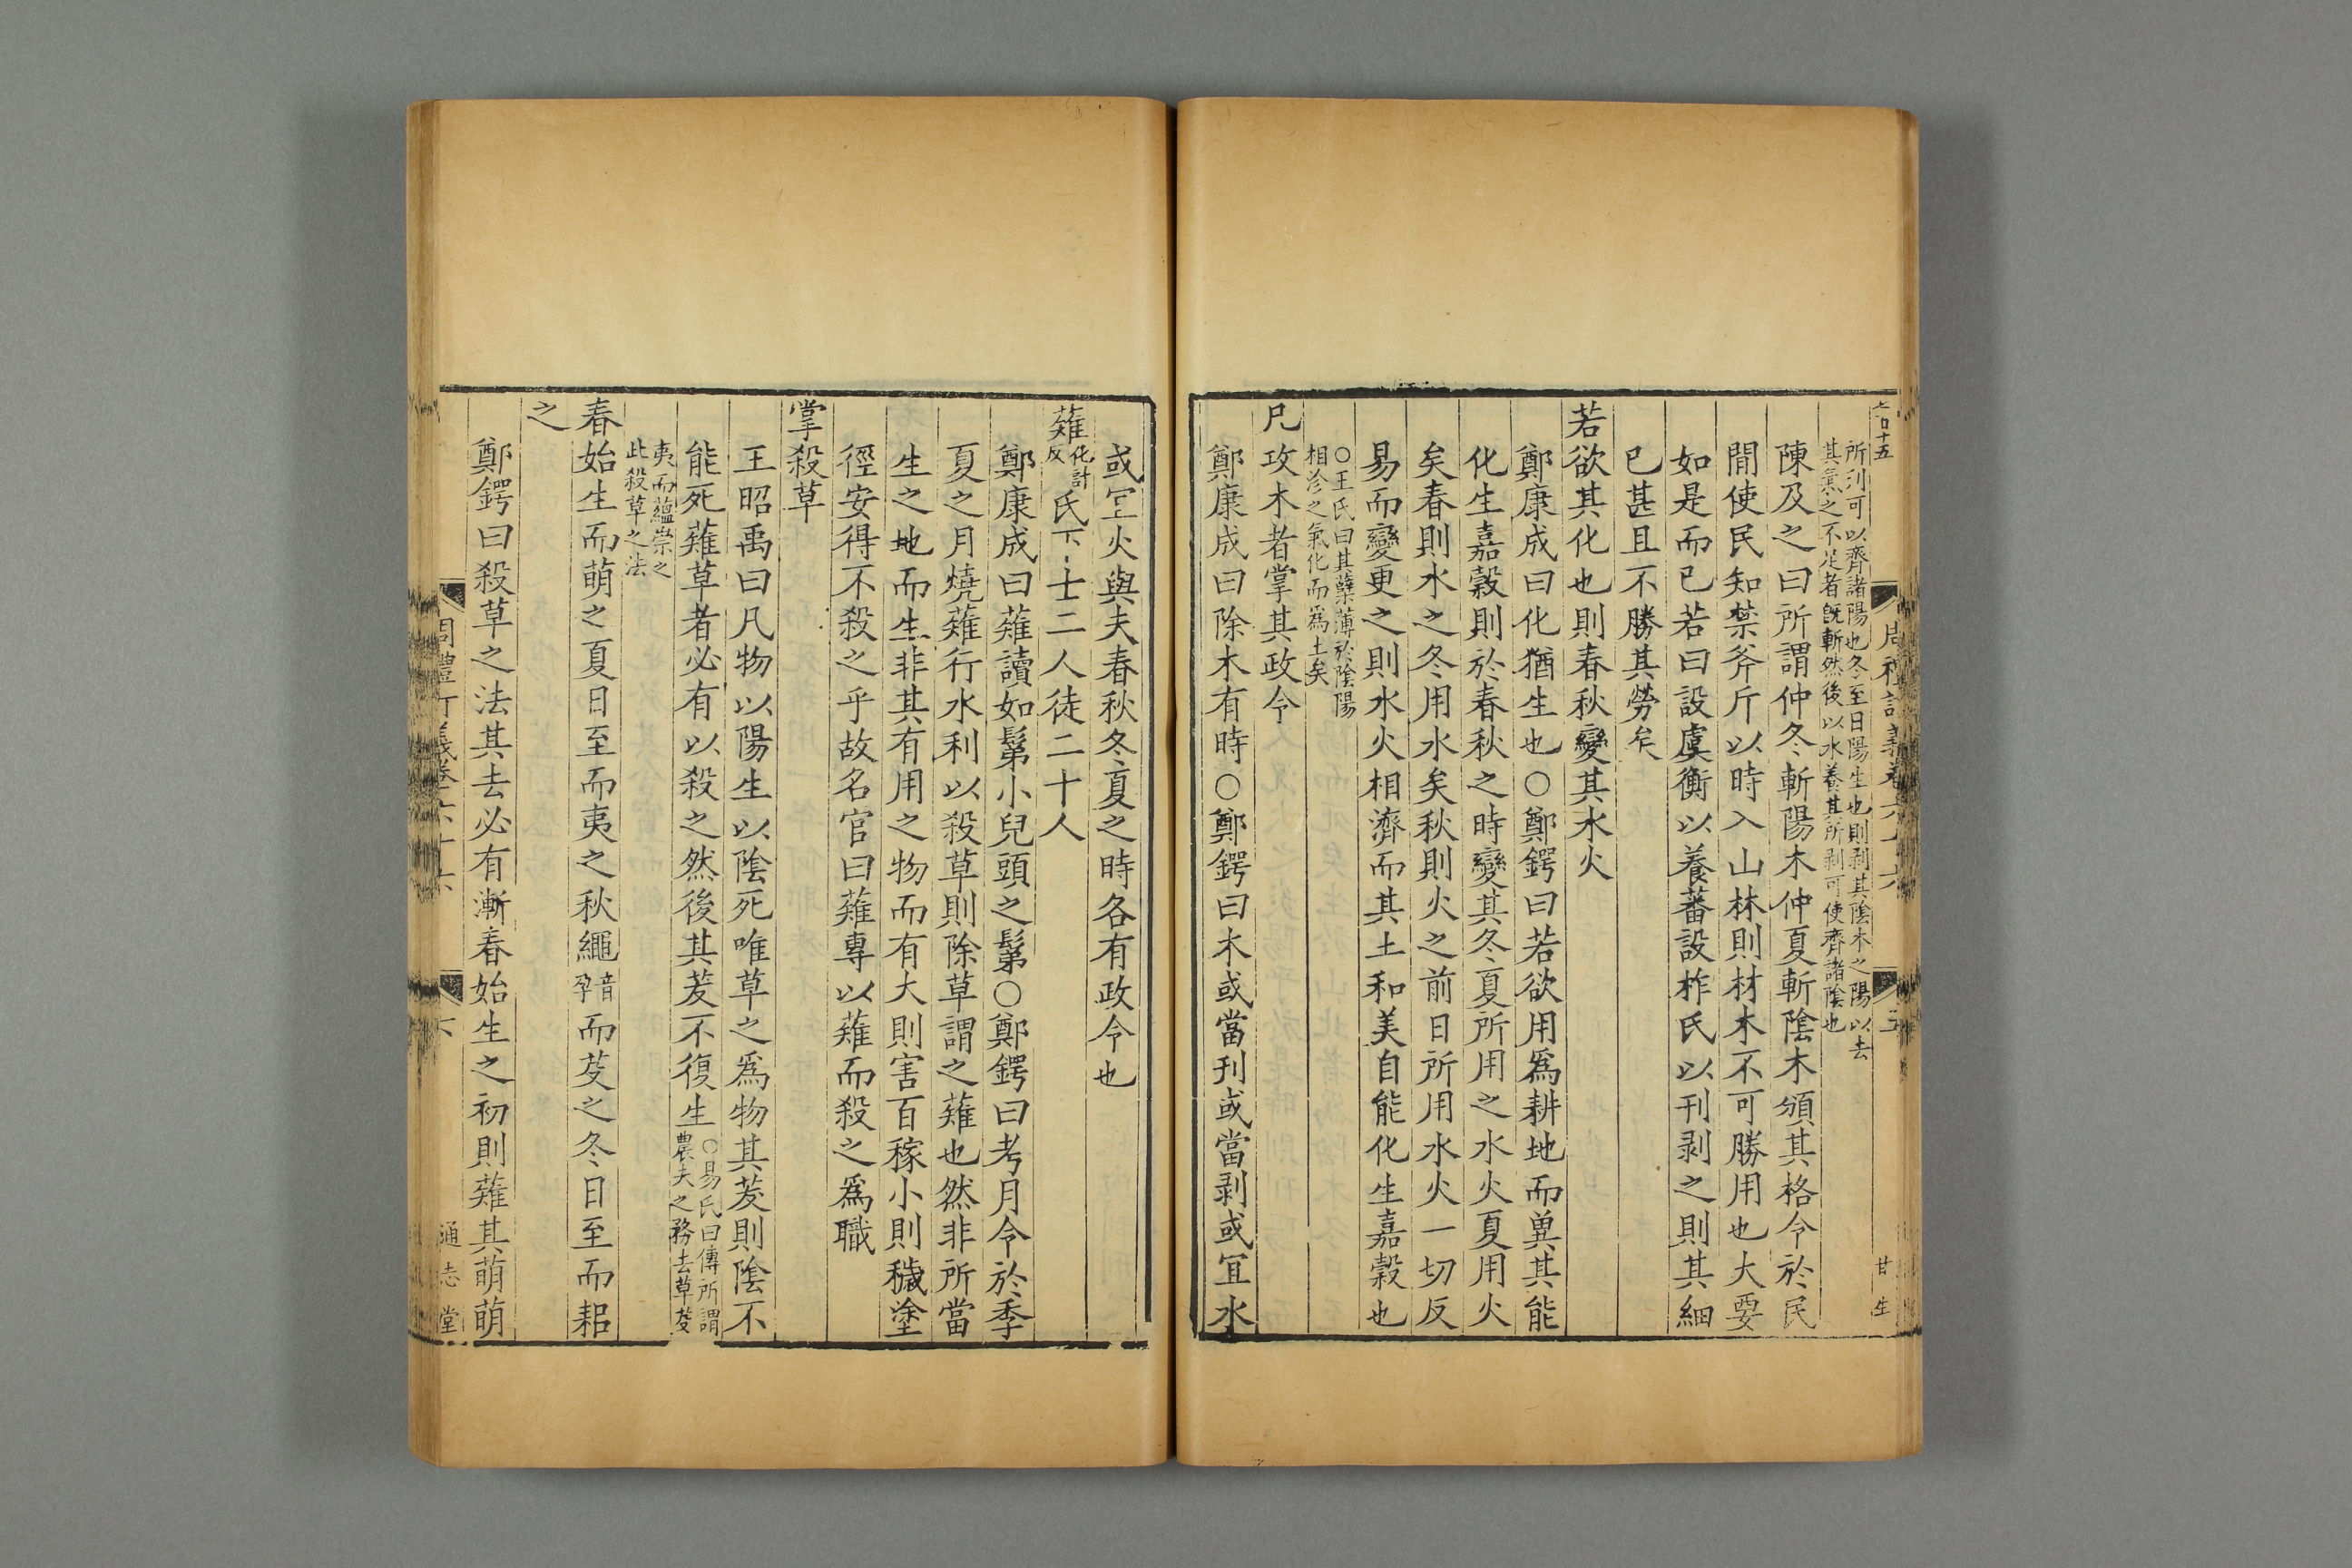 所刋可以齊諸陽也冬至日陽生也則剥其陰木之陽以去
其氣之不足者旣斬然後以水養其所剥可使齊諸陰也
陳及之曰所謂仲冬斬陽木仲夏斬陰木頒其格令於民
間使民知禁斧斤以時入山林則材木不可勝用也大要
如是而已若曰設虞衡以養蕃設柞氏以刊剥之則其細
已甚且不勝其勞矣
若欲其化也則春秋變其水火
鄭康成曰化猶生也○鄭鍔曰若欲用爲耕地而兾其能
化生嘉穀則於春秋之時變其冬夏所用之水火夏用火
矣春則水之冬用水矣秋則火之前日所用水火一切反
易而變更之則水火相濟而其土和美自能化生嘉穀也
○王氏曰其蘖薄於陰陽
相沴之氣化而爲土矣
凡攻木者掌其政令
鄭康成曰除木有時○鄭鍔曰木或當刋或當剥或宜水
或宜火與夫春秋冬夏之時各有政令也
薙化計反氏下士二人徒二十人
鄭康成曰薙讀如鬀小兒頭之鬀○鄭鍔曰考月令於季
夏之月燒薙行水利以殺草則除草謂之薙也然非所當
生之地而生非其有用之物而有大則害百稼小則穢塗
徑安得不殺之乎故名官曰薙專以薙而殺之爲職
掌殺草
王昭禹曰凡物以陽生以陰死唯草之爲物其茇則陰不
能死薙草者必有以殺之然後其茇不復生○易氏曰傳所謂農夫之務去草芟
夷而蘊崇之
此殺草之法
春始生而萌之夏日至而夷之秋繩音孕而芟之冬日至而耜
之
鄭鍔曰殺草之法其去必有漸春始生之初則薙其萌萌
通志堂